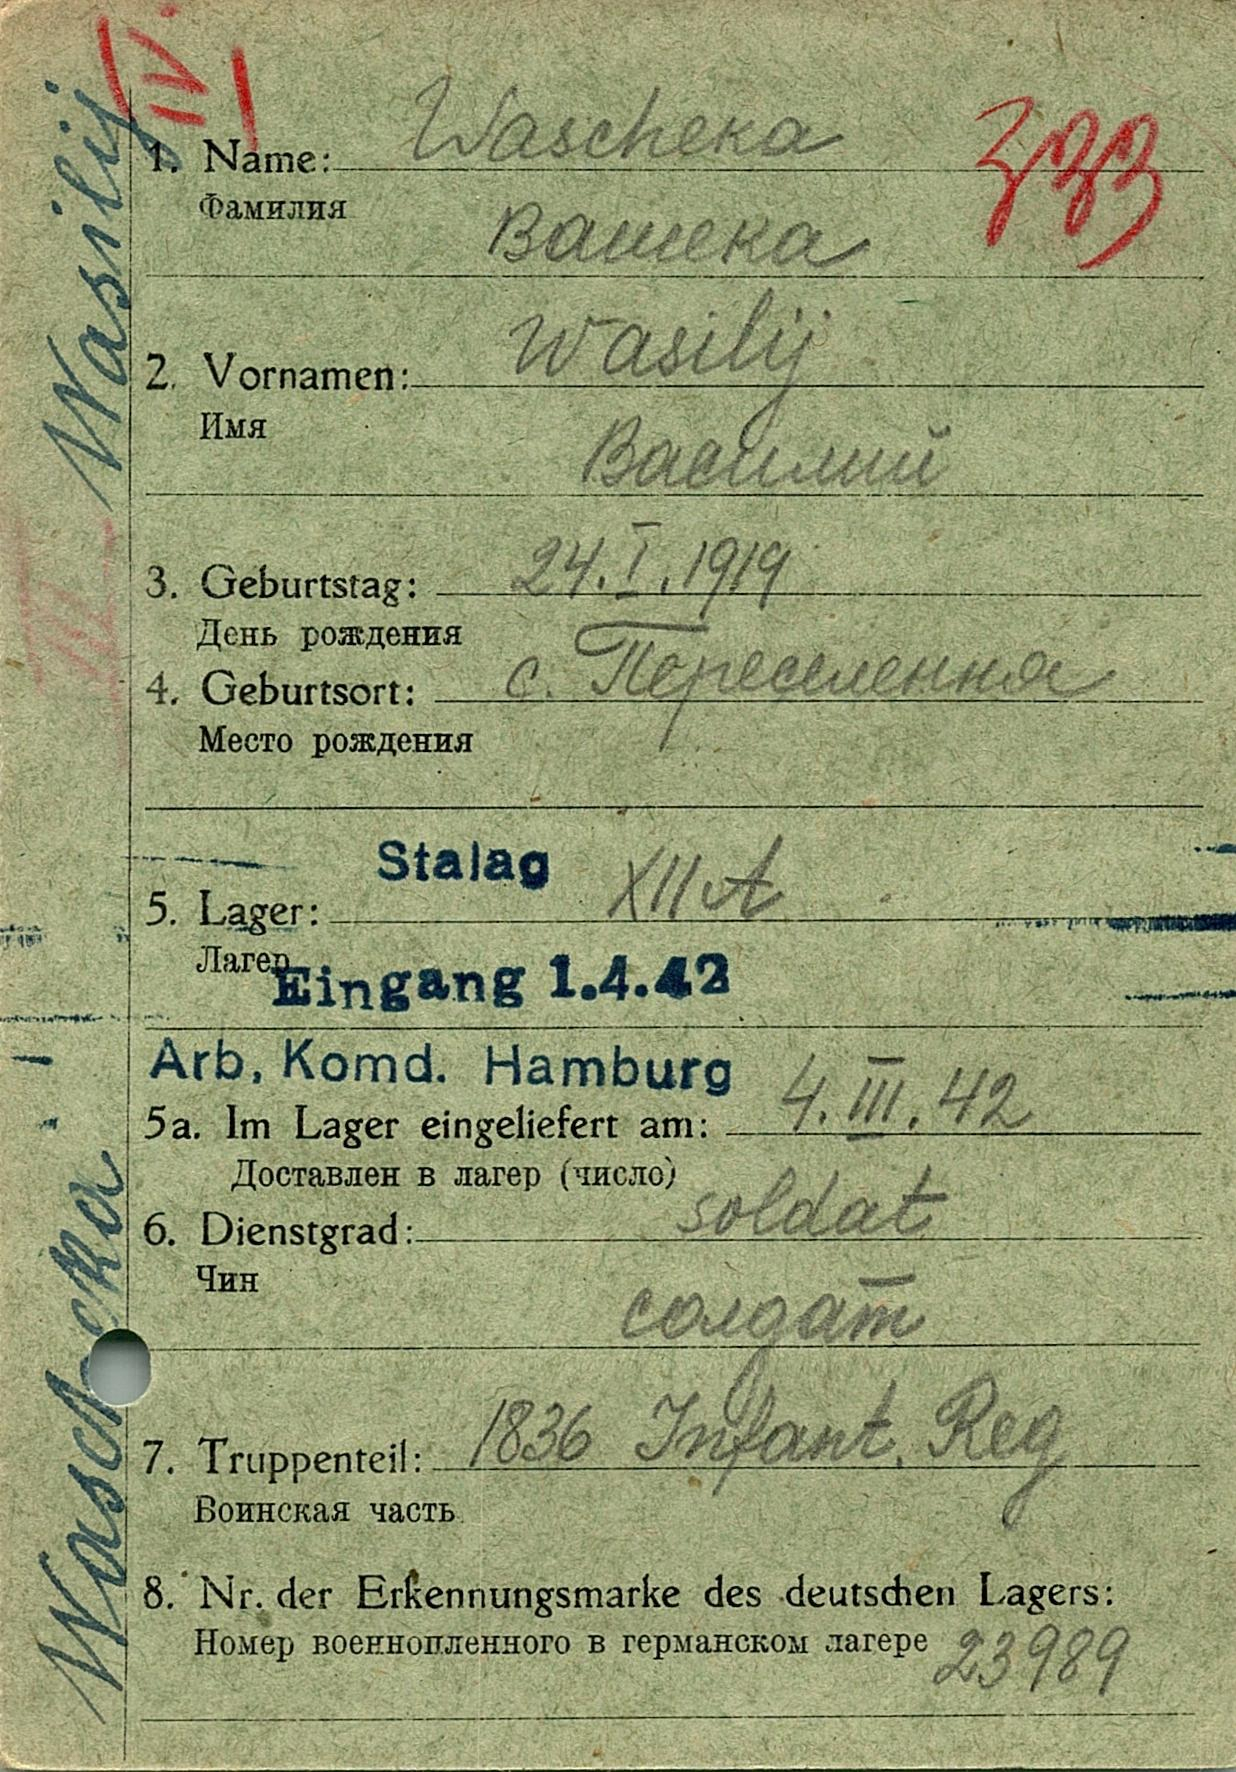 IV.
Wascheka
1. Name:
333
Фамилия
Вашека
Wasilij
2. Vornamen:
Имя
Василий
3. Geburtstag: 24.I.1919
День рождения
4. Geburtsort: с. Переселенноя
Место рождения
Stalag XII A
5. Lager:
Лагер
Eingang 1.4.42
Arb, Komd. Hamburg
5a. Im Lager eingeliefert am: 4.III.42
Доставлен в лагер (число)
6. Dienstgrad: soldat
Чин
солдат
7. Truppenteil: 1836 Infant. Reg
Воинская часть
8. Nr. der Erkennungsmarke des deutschen Lagers:
Номер военнопленного в германском лагере 23989
Wascheka Wasilij